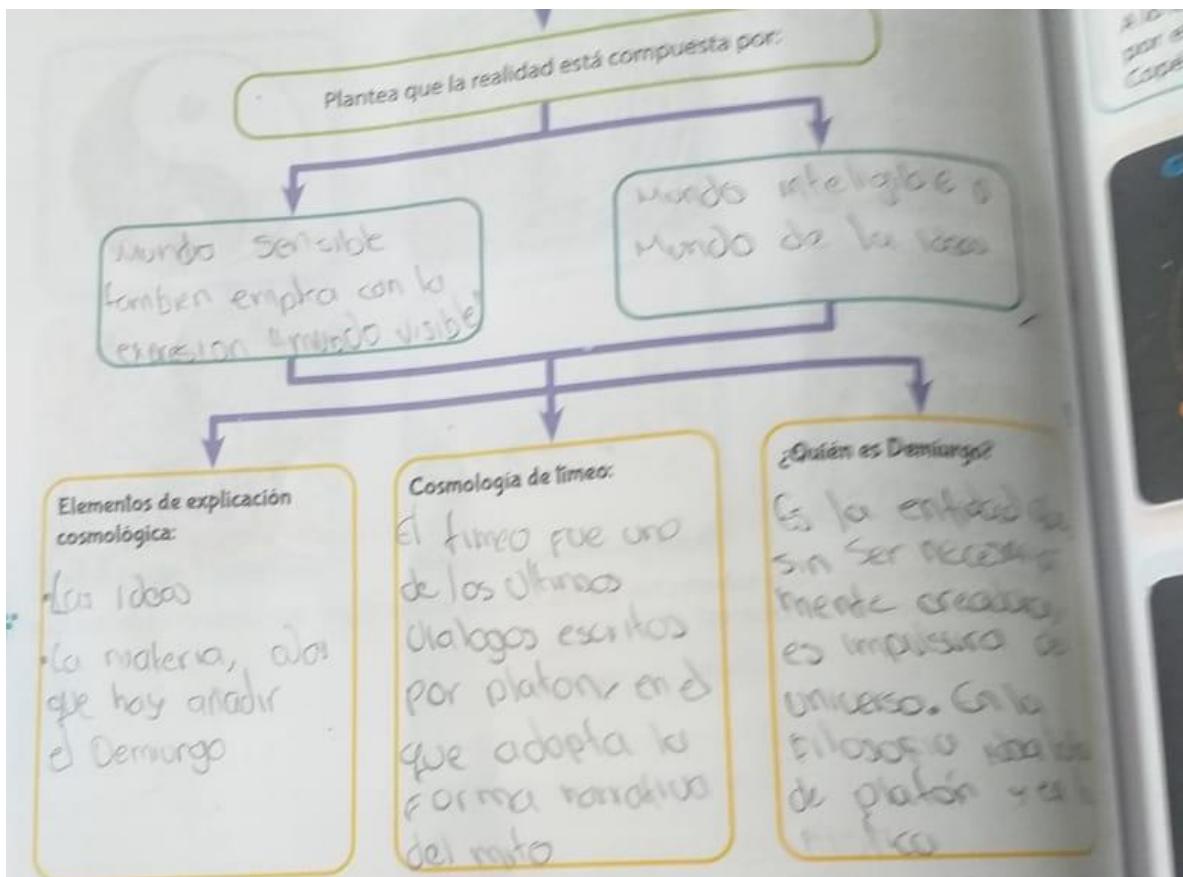 Plantea que la realidad está compuesta por:
Mundo sensible
tambien emplea con la
expresion "mundo visible"
Mundo inteligible o
Mundo de la ideas
Elementos de explicación
cosmológica:
•Las ideas
•La materia, a los
que hay añadir
el Demiurgo
Cosmología de timeo:
El timeo fue uno
de los ultimos
dialogos escritos
por platon, en el
que adopta la
forma narrativa
del mito
¿Quién es Demiurgo?
Es la entidad
sin ser necesaria
mente creadora,
es impulsora
universo. En la
Filosofia
de platón y en